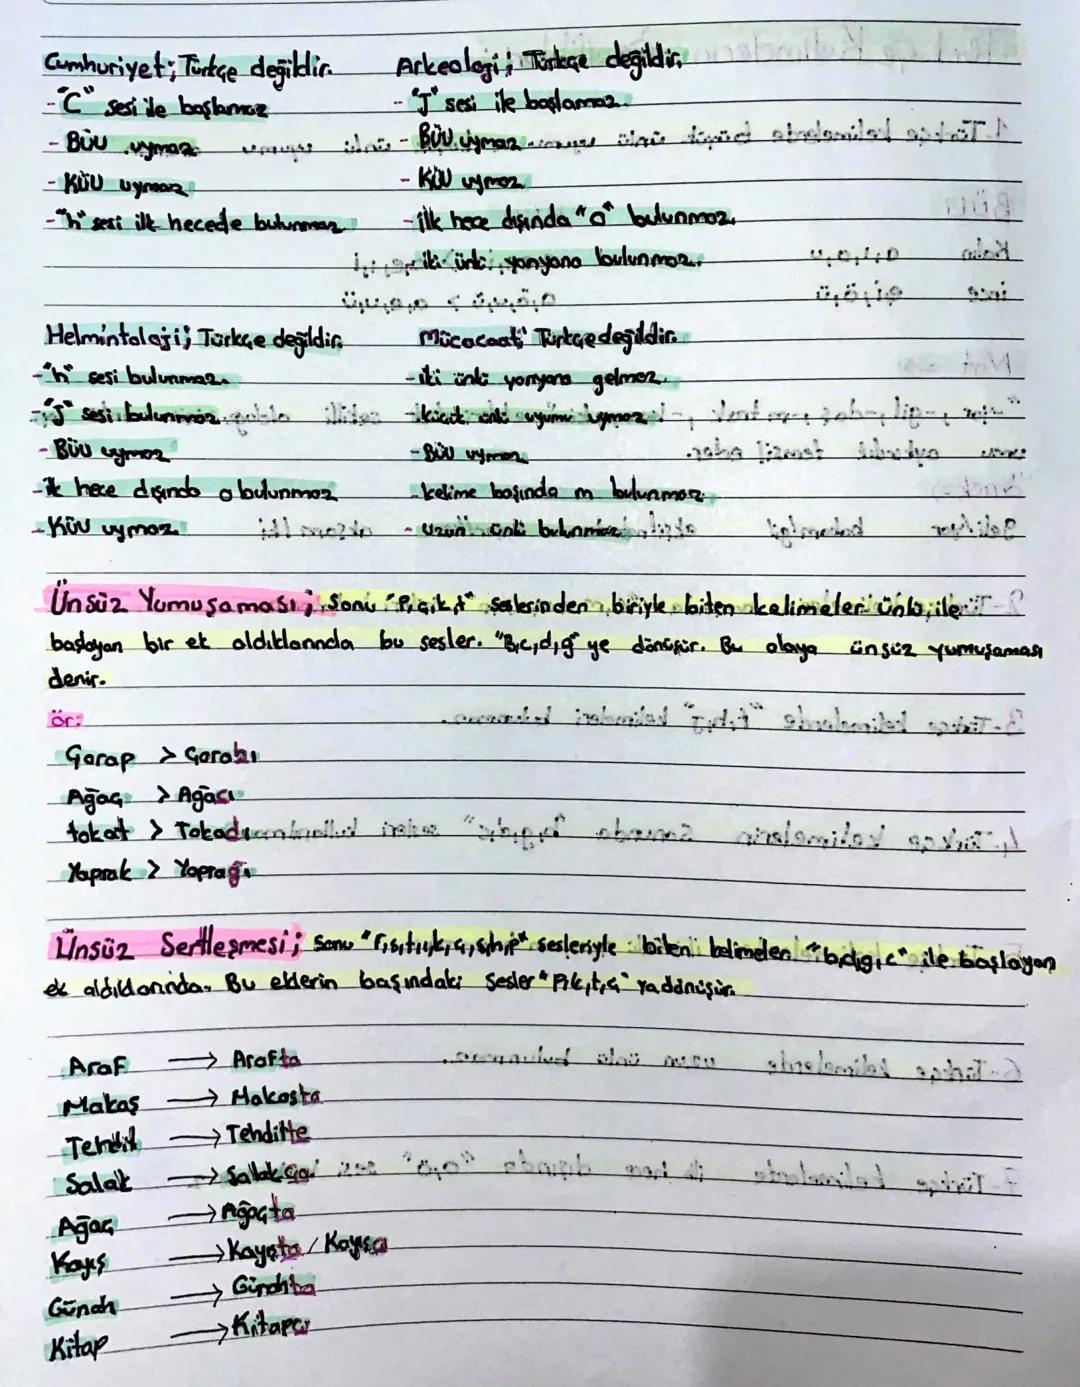 Cumhuriyet; Türkçe değildir.
-"C" sesi ile başlamaz
- BÜU uymaz
- KÜU uymaz
-"h" sesi ilk hecede bulunmaz
Arkeoloji; Türkçe değildir.
-"J" sesi ile başlamaz.
- BÜU uymaz
- KÜU uymaz
-ilk hece dışında "o" bulunmaz.
iki ünlü yanyana bulunmaz.
Helmintoloji; Türkçe değildir.
-"h" sesi bulunmaz.
-"J" sesi bulunmaz
- BÜU uymaz
-ilk hece dışında o bulunmaz
- KÜU uymaz
Mücacaat; Türkçe değildir.
-iki ünlü yanyana gelmez.
-küçük ünlü uyumu uymaz
-BÜU uymaz
-kelime başında m bulunmaz
- uzun ünlü bulunmaz
Ünsüz Yumuşaması; Sonu "P,ç,k,t" seslerinden biriyle biten kelimeler ünlü ile
başlayan bir ek aldıklarında bu sesler. "B,c,d,ğ" ye dönüşür. Bu olaya ünsüz yumuşaması
denir.
ör:
Garap > Garabı
Ağaç > Ağacı
tokat > Tokadı
Yaprak > Yaprağı
Ünsüz Sertleşmesi; Sonu "f,s,t,k,ç,ş,h,p" sesleriyle biten kelimeler "b,d,g,c" ile başlayan
ek aldıklarında. Bu eklerin başındaki sesler "P,k,t,ç" ya dönüşür.
Araf → Arafta
Makas → Makasta
Tehdit → Tehditte
Salak → Salakça
Ağaç → Ağaçta
Kayış → Kayışta / Kayışçı
Günah → Günahta
Kitap → Kitapçı